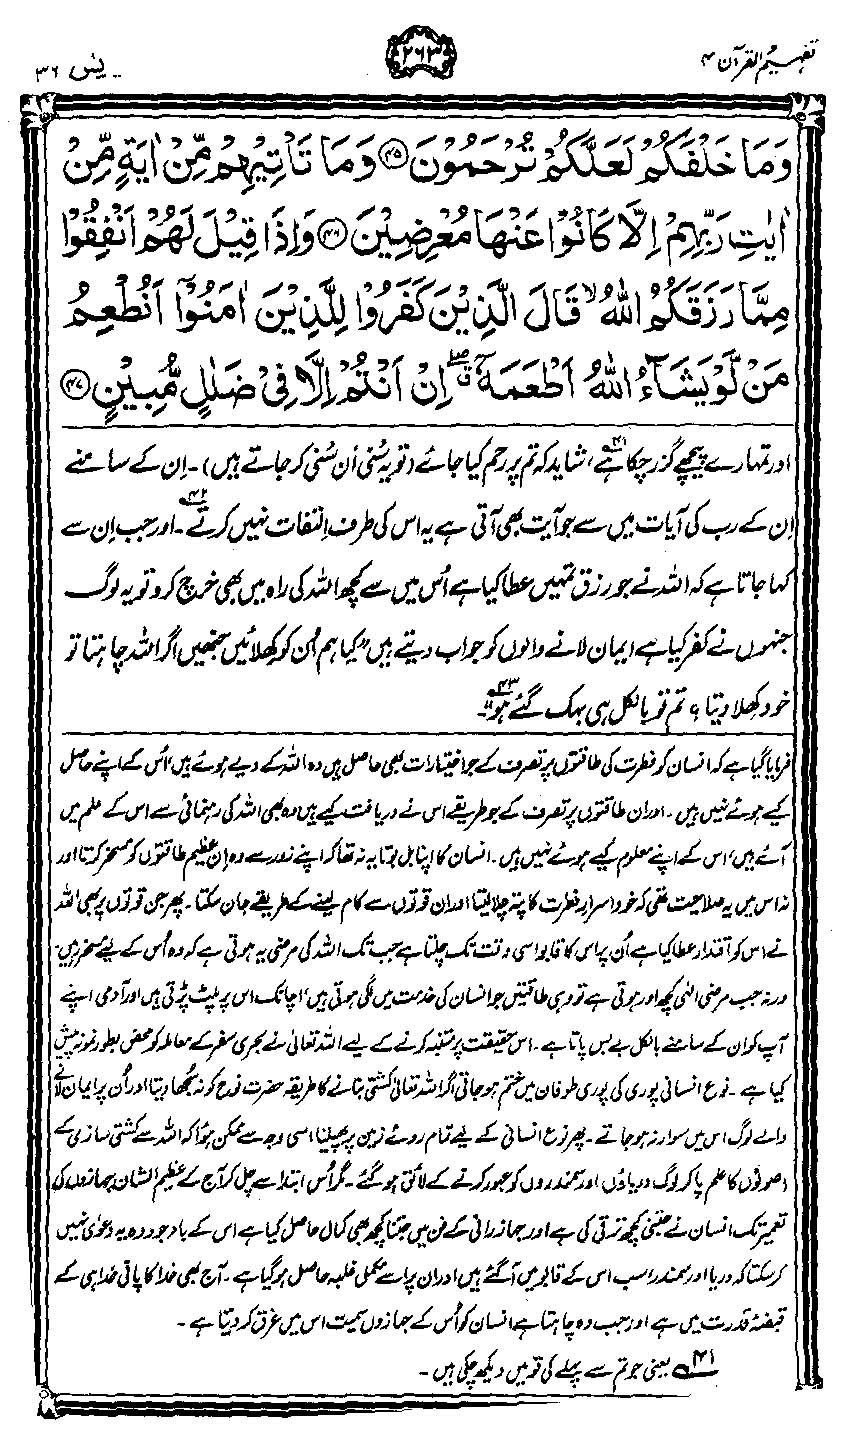 تفہیم القرآن ۴
۲۶۳
یٰسٓ ۳۶
وَمَا خَلْفَكُمْ لَعَلَّكُمْ تُرْحَمُوْنَ ﴿۴۵﴾ وَمَا تَاْتِيْهِمْ مِّنْ اٰيَةٍ مِّنْ
اٰيٰتِ رَبِّهِمْ اِلَّا كَانُوْا عَنْهَا مُعْرِضِيْنَ ﴿۴۶﴾ وَاِذَا قِيْلَ لَهُمْ اَنْفِقُوْا
مِمَّا رَزَقَكُمُ اللّٰهُ ۙ قَالَ الَّذِيْنَ كَفَرُوْا لِلَّذِيْنَ اٰمَنُوْٓا اَنُطْعِمُ
مَنْ لَّوْ يَشَآءُ اللّٰهُ اَطْعَمَهٗٓ ۖ اِنْ اَنْتُمْ اِلَّا فِيْ ضَلٰلٍ مُّبِيْنٍ ﴿۴۷﴾
اور تمہارے پیچھے گزر چکا ہے۴۱، شاید کہ تم پر رحم کیا جائے (تو یہ سُنی اَن سُنی کر جاتے ہیں)۔ اِن کے سامنے
اِن کے رب کی آیات میں سے جو آیت بھی آتی ہے یہ اس کی طرف التفات نہیں کرتے۴۲۔ اور جب اِن سے
کہا جاتا ہے کہ اللہ نے جو رزق تمہیں عطا کیا ہے اُس میں سے کچھ اللہ کی راہ میں بھی خرچ کرو تو یہ لوگ
جنہوں نے کفر کیا ہے ایمان لانے والوں کو جواب دیتے ہیں "کیا ہم اُن کو کھلائیں جنھیں اگر اللہ چاہتا تو
خود کھلا دیتا؟ تم تو بالکل ہی بہک گئے ہو۴۳"۔
فرمایا گیا ہے کہ انسان کو فطرت کی طاقتوں پر تصرف کے جو اختیارات بھی حاصل ہیں وہ اللہ کے دیے ہوئے ہیں، اُس کے اپنے حاصل
کیے ہوئے نہیں ہیں۔ اور ان طاقتوں پر تصرف کے جو طریقے اس نے دریافت کیے ہیں وہ بھی اللہ کی رہنمائی سے اس کے علم میں
آئے ہیں، اس کے اپنے معلوم کیے ہوئے نہیں ہیں۔ انسان کا اپنا بل بوتا یہ نہ تھا کہ اپنے زور سے وہ اِن عظیم طاقتوں کو مسخر کرتا اور
نہ اس میں یہ صلاحیت تھی کہ خود اسرارِ فطرت کا پتہ چلا لیتا اور ان قوتوں سے کام لینے کے طریقے جان سکتا۔ پھر جن قوتوں پر بھی اللہ
نے اس کو اقتدار عطا کیا ہے اُن پر اس کا قابو اسی وقت تک چلتا ہے جب تک اللہ کی مرضی یہ ہوتی ہے کہ وہ اُس کے لیے مسخر رہیں۔
ورنہ جب مرضی الٰہی کچھ اور ہوتی ہے تو وہی طاقتیں جو انسان کی خدمت میں لگی ہوتی ہیں، اچانک اس پر پلٹ پڑتی ہیں اور آدمی اپنے
آپ کو ان کے سامنے بالکل بے بس پاتا ہے۔ اس حقیقت پر متنبہ کرنے کے لیے اللہ تعالیٰ نے بحری سفر کے معاملہ کو محض بطور نمونہ پیش
کیا ہے۔ نوع انسانی پوری کی پوری طوفان میں ختم ہو جاتی اگر اللہ تعالیٰ کشتی بنانے کا طریقہ حضرت نوح کو نہ سُجھا دیتا اور اُن پر ایمان لانے
والے لوگ اس میں سوار نہ ہو جاتے۔ پھر نوع انسانی کے لیے تمام روئے زمین پر پھیلنا اسی وجہ سے ممکن ہوا کہ اللہ سے کشتی سازی کے
اصولوں کا علم پا کر لوگ دریاؤں اور سمندروں کو عبور کرنے کے لائق ہو گئے۔ مگر اُس ابتدا سے چل کر آج کے عظیم الشان جہازوں کی
تعمیر تک انسان نے جتنی کچھ ترقی کی ہے اور جہاز رانی کے فن میں جتنا کچھ بھی کمال حاصل کیا ہے اس کے باوجود وہ یہ دعویٰ نہیں
کر سکتا کہ دریا اور سمندر، سب اس کے قابو میں آ گئے ہیں اور ان پر اسے مکمل غلبہ حاصل ہو گیا ہے۔ آج بھی خدا کا پانی خدا ہی کے
قبضۂ قدرت میں ہے اور جب وہ چاہتا ہے انسان کو اُس کے جہازوں سمیت اس میں غرق کر دیتا ہے۔
۴۱ یعنی جو تم سے پہلے کی قومیں دیکھ چکی ہیں۔